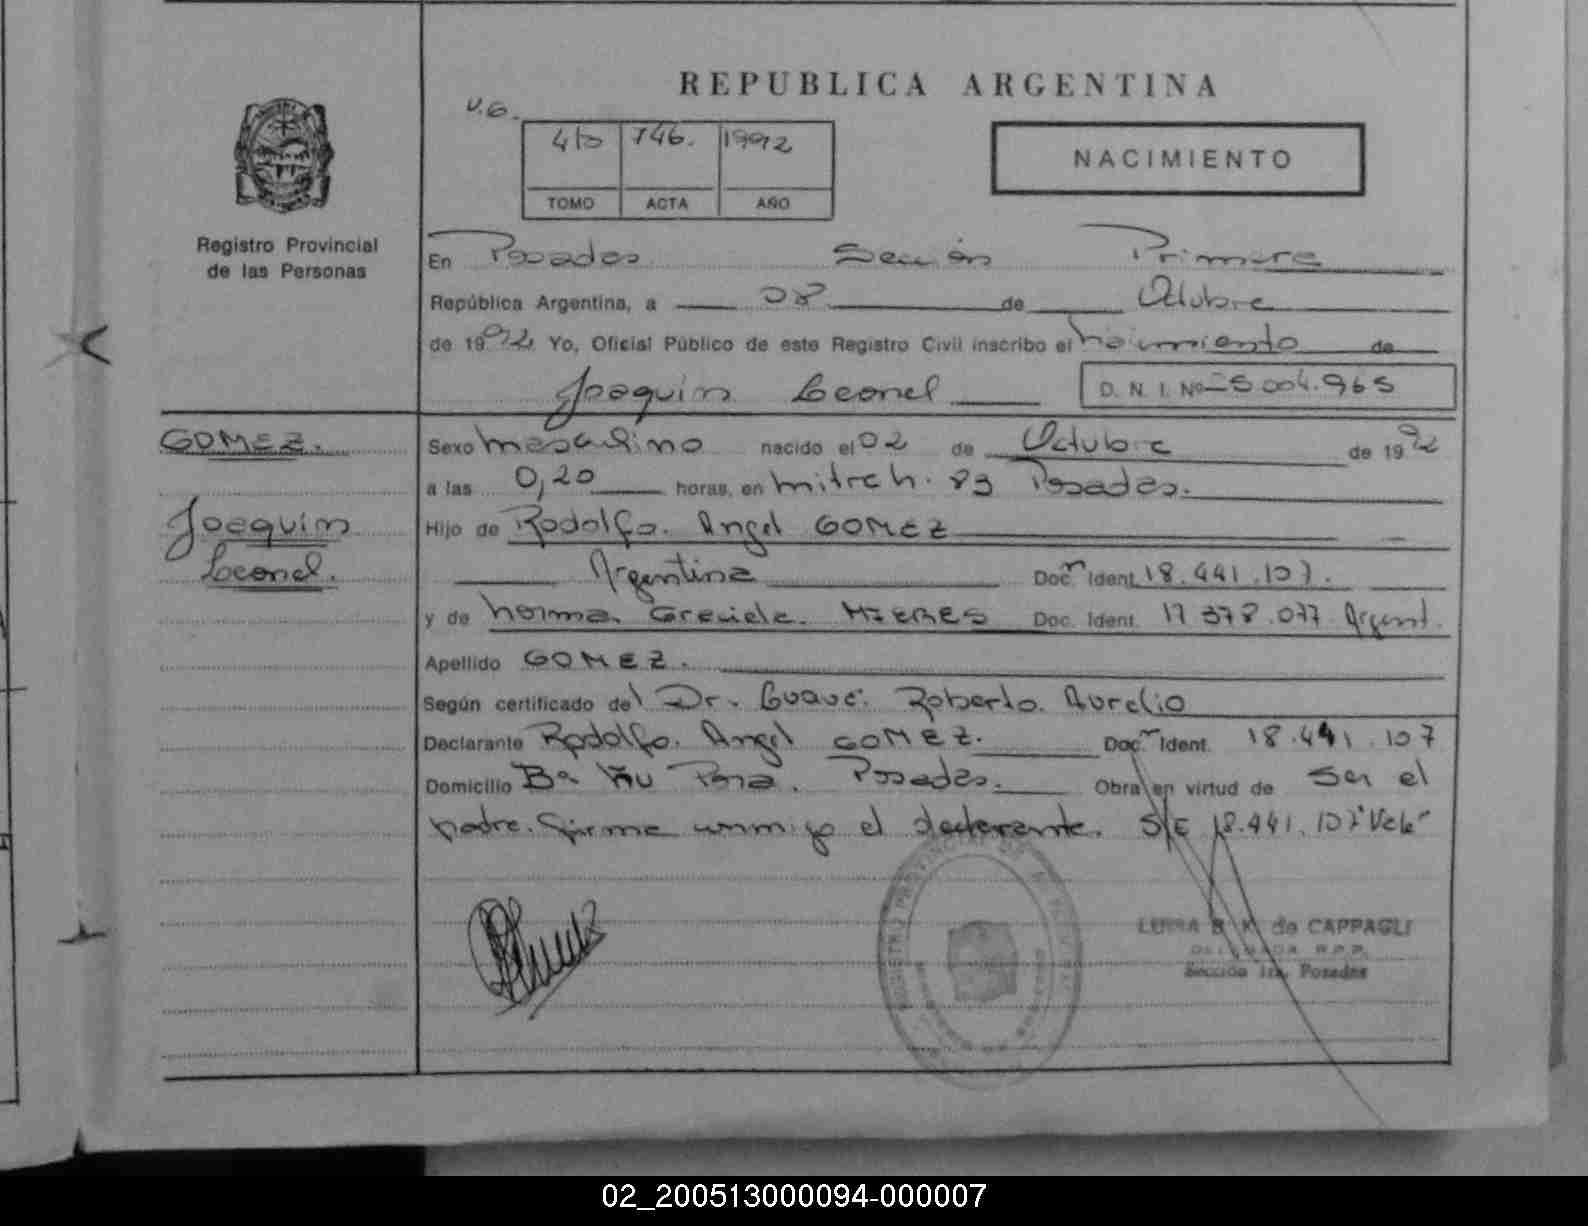 REPUBLICA ARGENTINA
V.G.
4to 746. 1992
TOMO ACTA AÑO
NACIMIENTO
Registro Provincial
de las Personas
En Posadas Sección Primera
República Argentina, a 08 de Octubre
de 1992 Yo, Oficial Público de este Registro Civil inscribo el nacimiento de
Joaquin Leonel D. N. I. Nº 5.004.965
GOMEZ.
Joaquin
Leonel.
Sexo masculino nacido el 02 de Octubre de 1992
a las 0,20 horas, en mitre n. 83 Posadas.
Hijo de Rodolfo. Angel GOMEZ
Argentina Doc. Ident. 18.441.107.
y de Norma. Graciela. MIERES Doc. Ident. 17 378.077 Argent.
Apellido GOMEZ.
Según certificado del Dr. Roberto. Aurelio
Declarante Rodolfo. Angel GOMEZ. Doc. Ident. 18.441.107
Domicilio Bº Posadas. Obra en virtud de Ser el
padre. Firma conmigo el declarante. S/E 18.441.107 "Vale"
LUISA B. K. de CAPPAGLI
DELEGADA R.P.P.
Sección 1ra. Posadas
REGISTRO PROVINCIAL DE
02_200513000094-000007